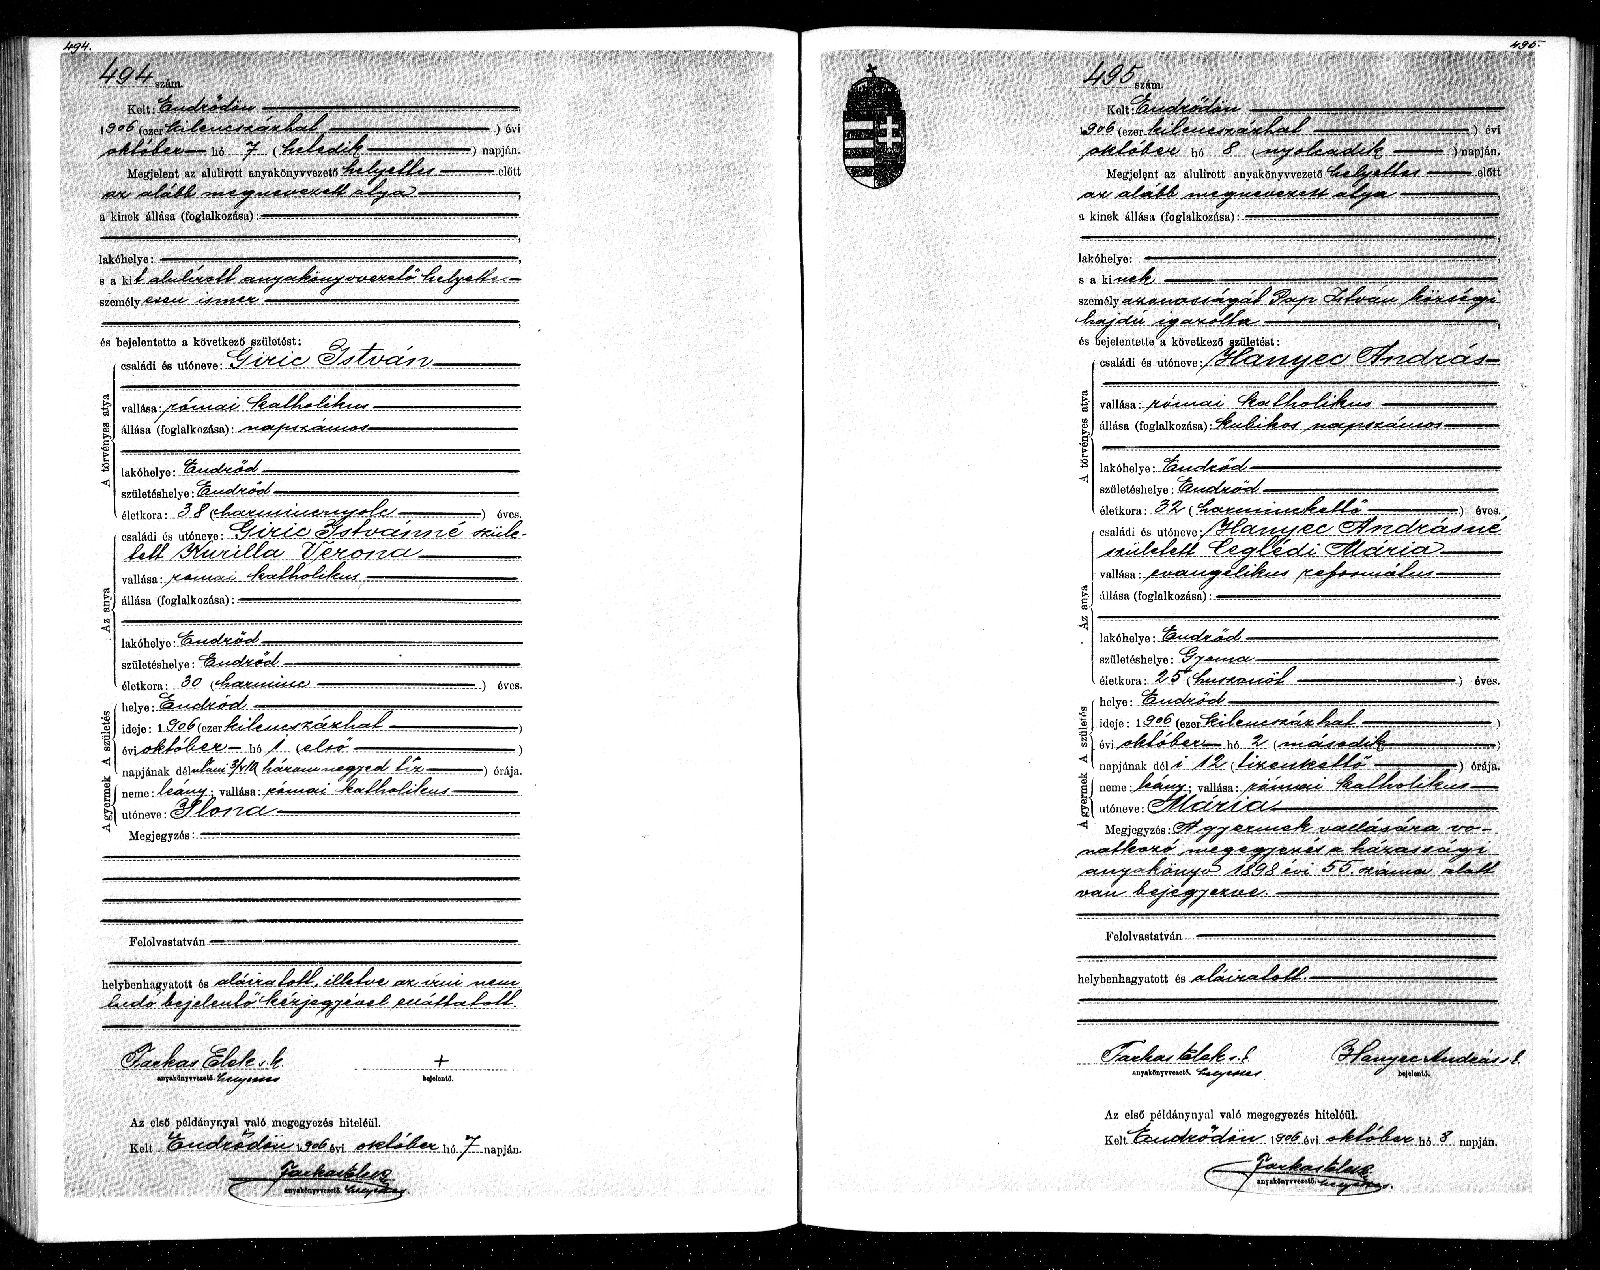 494.
494 szám.
Kelt: Endrődön
1906 (ezer kilencszázhat ) évi
október hó 7 (hetedik ) napján.
Megjelent az alulirott anyakönyvvezető helyettes előtt
az alább megnevezett atya ,
a kinek állása (foglalkozása):
,
lakóhelye:
s a kit alulírott anyakönyvvezető helyettes
személyesen ismer
,
és bejelentette a következő születést:
A törvényes atya
családi és utóneve: Giric István
vallása: római katholikus
állása (foglalkozása): napszámos
lakóhelye: Endrőd
születéshelye: Endrőd
életkora: 38 (harmincnyolc ) éves.
Az anya
családi és utóneve: Giric Istvánné szüle-
tett Kurilla Verona
vallása: római katholikus
állása (foglalkozása):
lakóhelye: Endrőd
születéshelye: Endrőd
életkora: 30 (harminc ) éves.
A születés
helye: Endrőd
ideje: 1906 (ezer kilencszázhat )
évi október hó 1 (első )
napjának délutáni 3/4 10 háromnegyed tíz ) órája.
A gyermek
neme: leány; vallása: római katholikus
utóneve: Ilona
Megjegyzés:
Felolvastatván
helybenhagyatott és aláiratott, illetve az írni nem
tudó bejelentő kézjegyével elláttatott.
Farkas Elek s. k. +
anyakönyvvezető. helyettes bejelentő.
Az első példánynyal való megegyezés hiteléül.
Kelt Endrődön 1906 évi október hó 7 napján.
Farkas Elek
anyakönyvvezető. helyettes.
495.
495 szám.
Kelt: Endrődön
1906 (ezer kilencszázhat ) évi
október hó 8 (nyolcadik ) napján.
Megjelent az alulirott anyakönyvvezető helyettes előtt
az alább megnevezett atya ,
a kinek állása (foglalkozása):
,
lakóhelye: ,
s a kinek
személyazonosságát Pap István községi
hajdú igazolta ,
és bejelentette a következő születést:
A törvényes atya
családi és utóneve: Hanyec András
vallása: római katholikus
állása (foglalkozása): kubikos napszámos
lakóhelye: Endrőd
születéshelye: Endrőd
életkora: 32 (harminckettő ) éves.
Az anya
családi és utóneve: Hanyec Andrásné
született Ceglédi Mária
vallása: evangélikus református
állása (foglalkozása):
lakóhelye: Endrőd
születéshelye: Gyoma
életkora: 25 (huszonöt ) éves.
A születés
helye: Endrőd
ideje: 1906 (ezer kilencszázhat )
évi október hó 2 (második )
napjának déli 12 (tizenkettő ) órája.
A gyermek
neme: leány; vallása: római katholikus
utóneve: Mária
Megjegyzés: A gyermek vallására vo-
natkozó megegyezés a házassági
anyakönyv 1898 évi 55. száma alatt
van bejegyezve.
Felolvastatván
helybenhagyatott és aláiratott.
Farkas Elek s. k. Hanyec András s. k.
anyakönyvvezető. helyettes bejelentő.
Az első példánynyal való megegyezés hiteléül.
Kelt Endrődön 1906 évi október hó 8 napján.
Farkas Elek
anyakönyvvezető. helyettes.